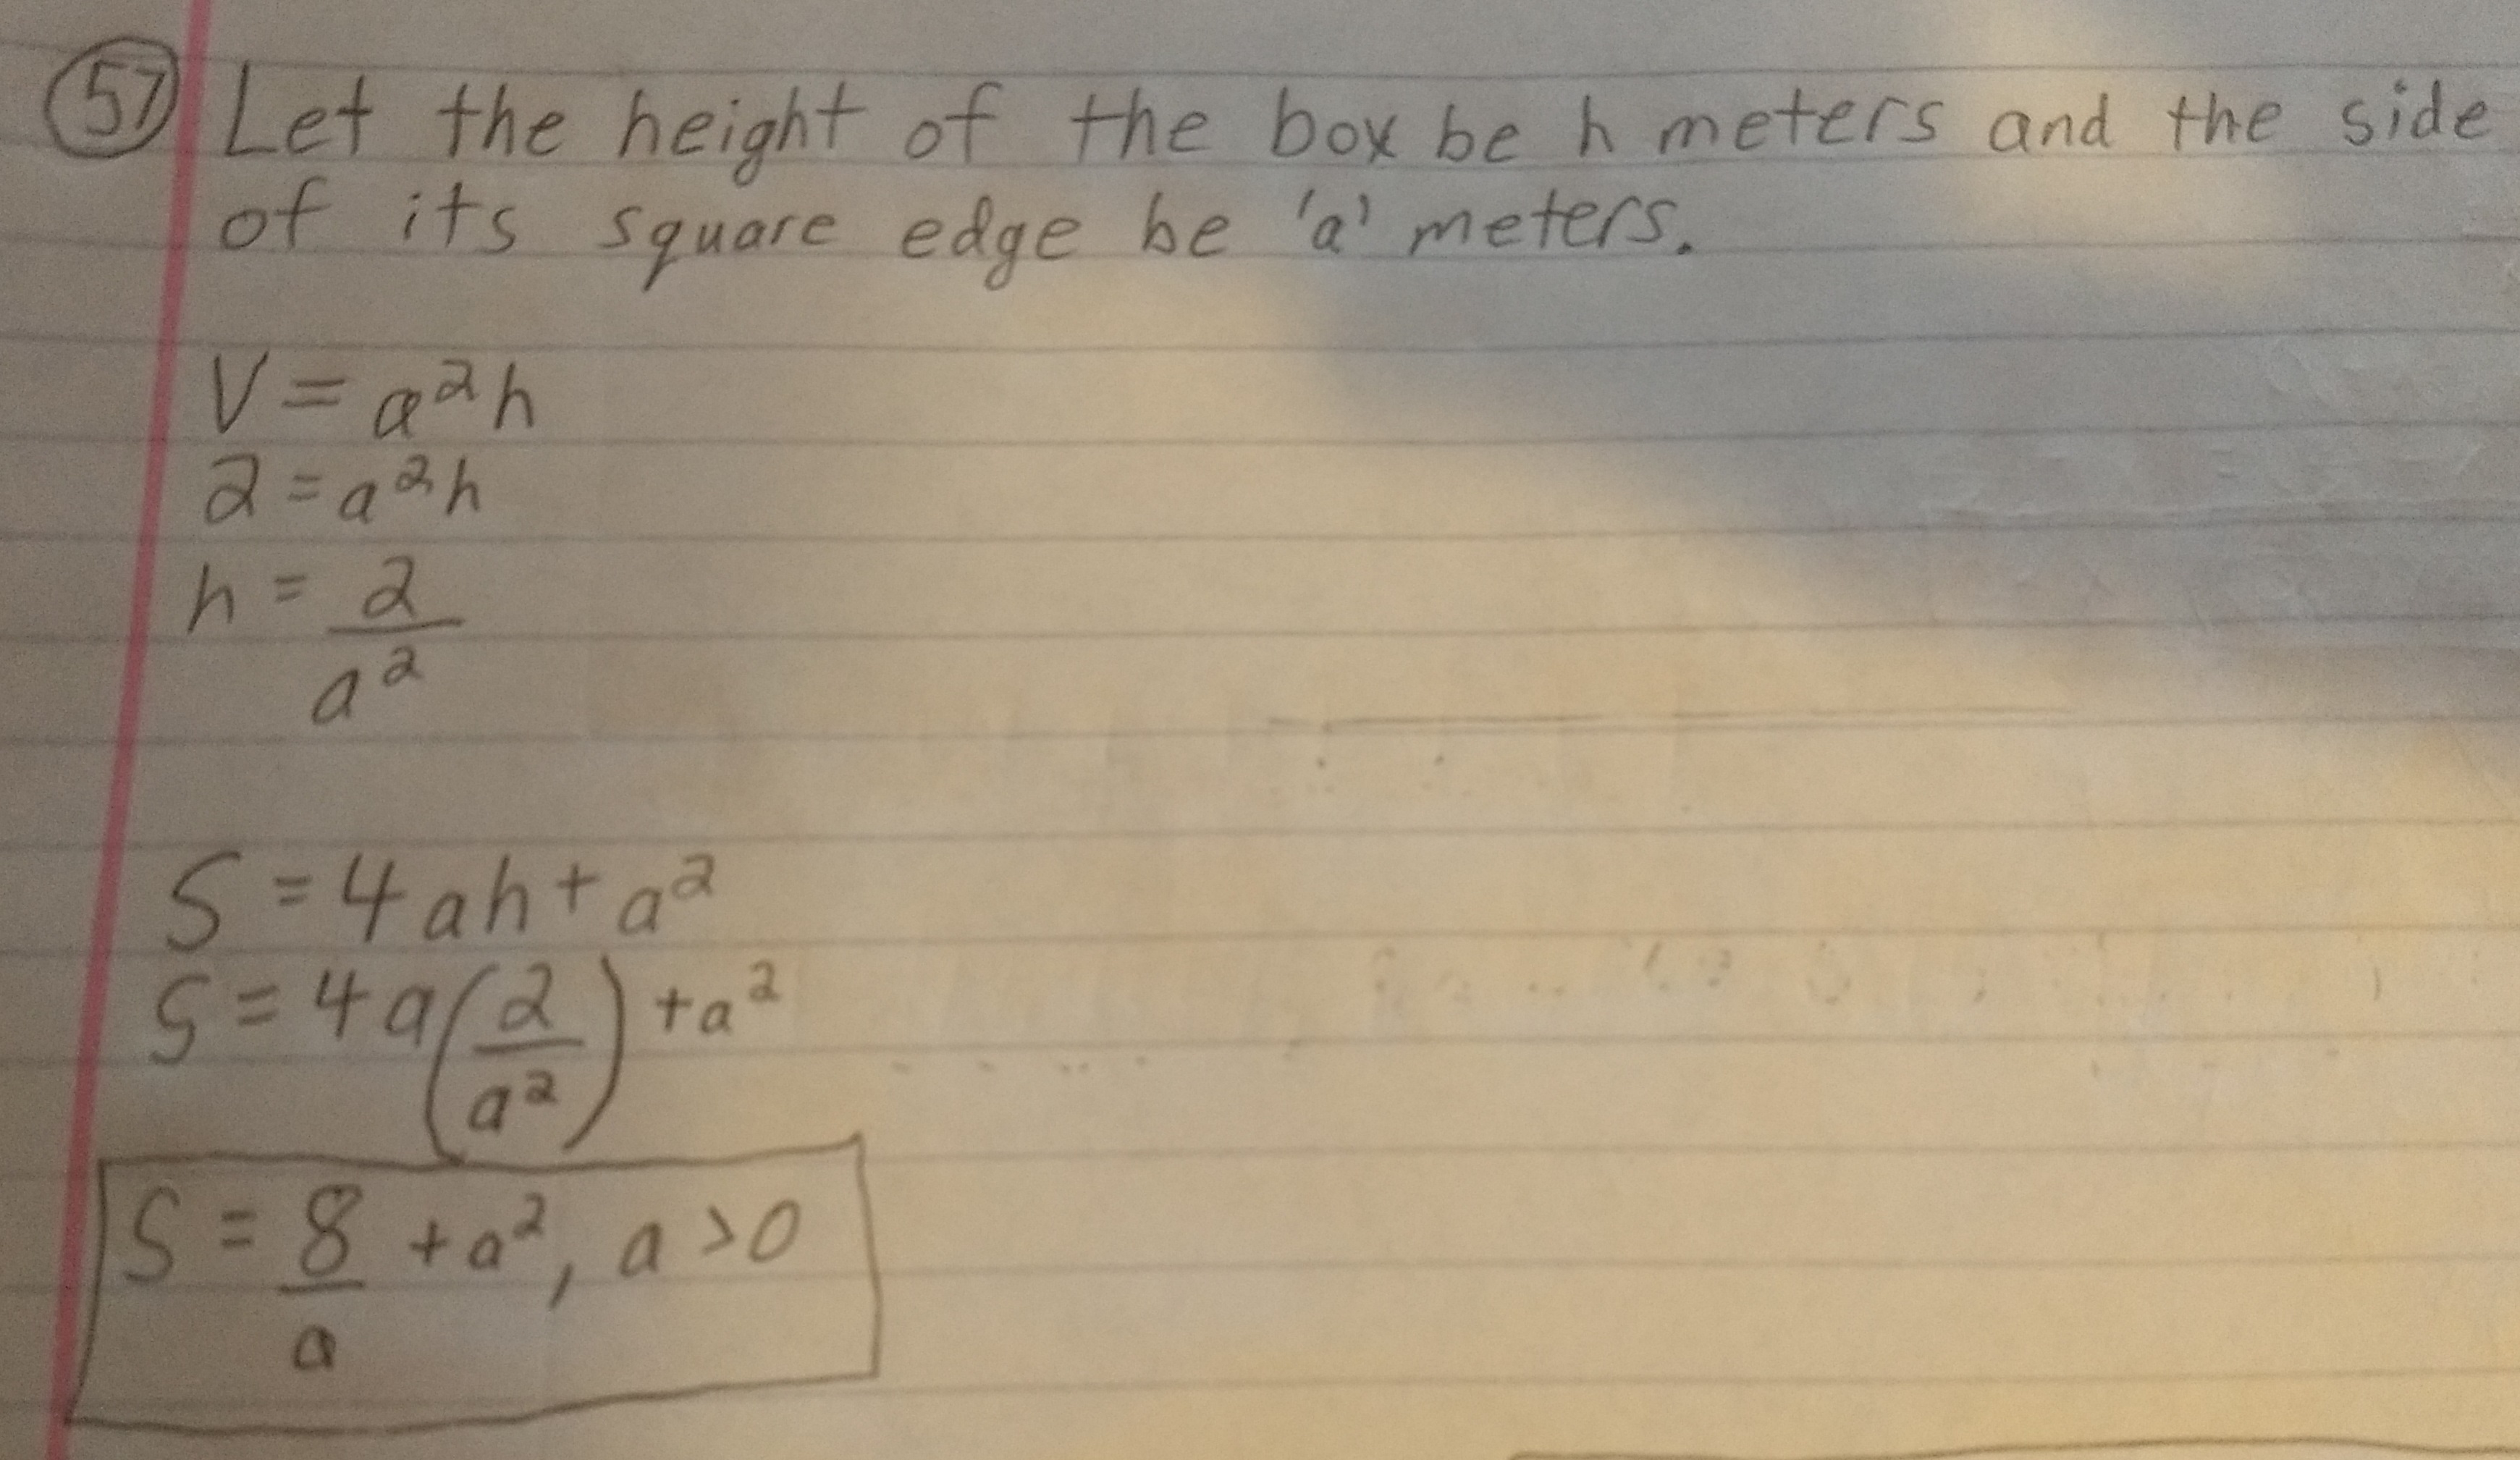 57 Let the height of the box be h meters and the side
of its square edge be 'a' meters.
V = a²h
2 = a²h
h = 2/a²
S = 4ah + a²
S = 4a(2/a²) + a²
S = 8/a + a², a > 0